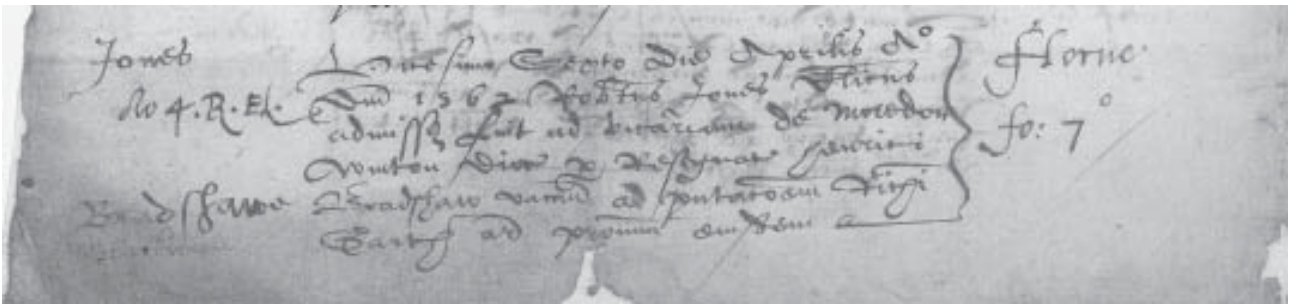 Jones
Ao 4. R. El.
Bradshawe
Vicesimo Sexto die Aprilis Ao
Dni 1562 Robtus Jones Clicus
admiss fuit ad vicariam de Moredon
Winton Dioc p Resignat henrici
Bradshaw vacan ad pntacoem
ad eiusdem
fo: 7